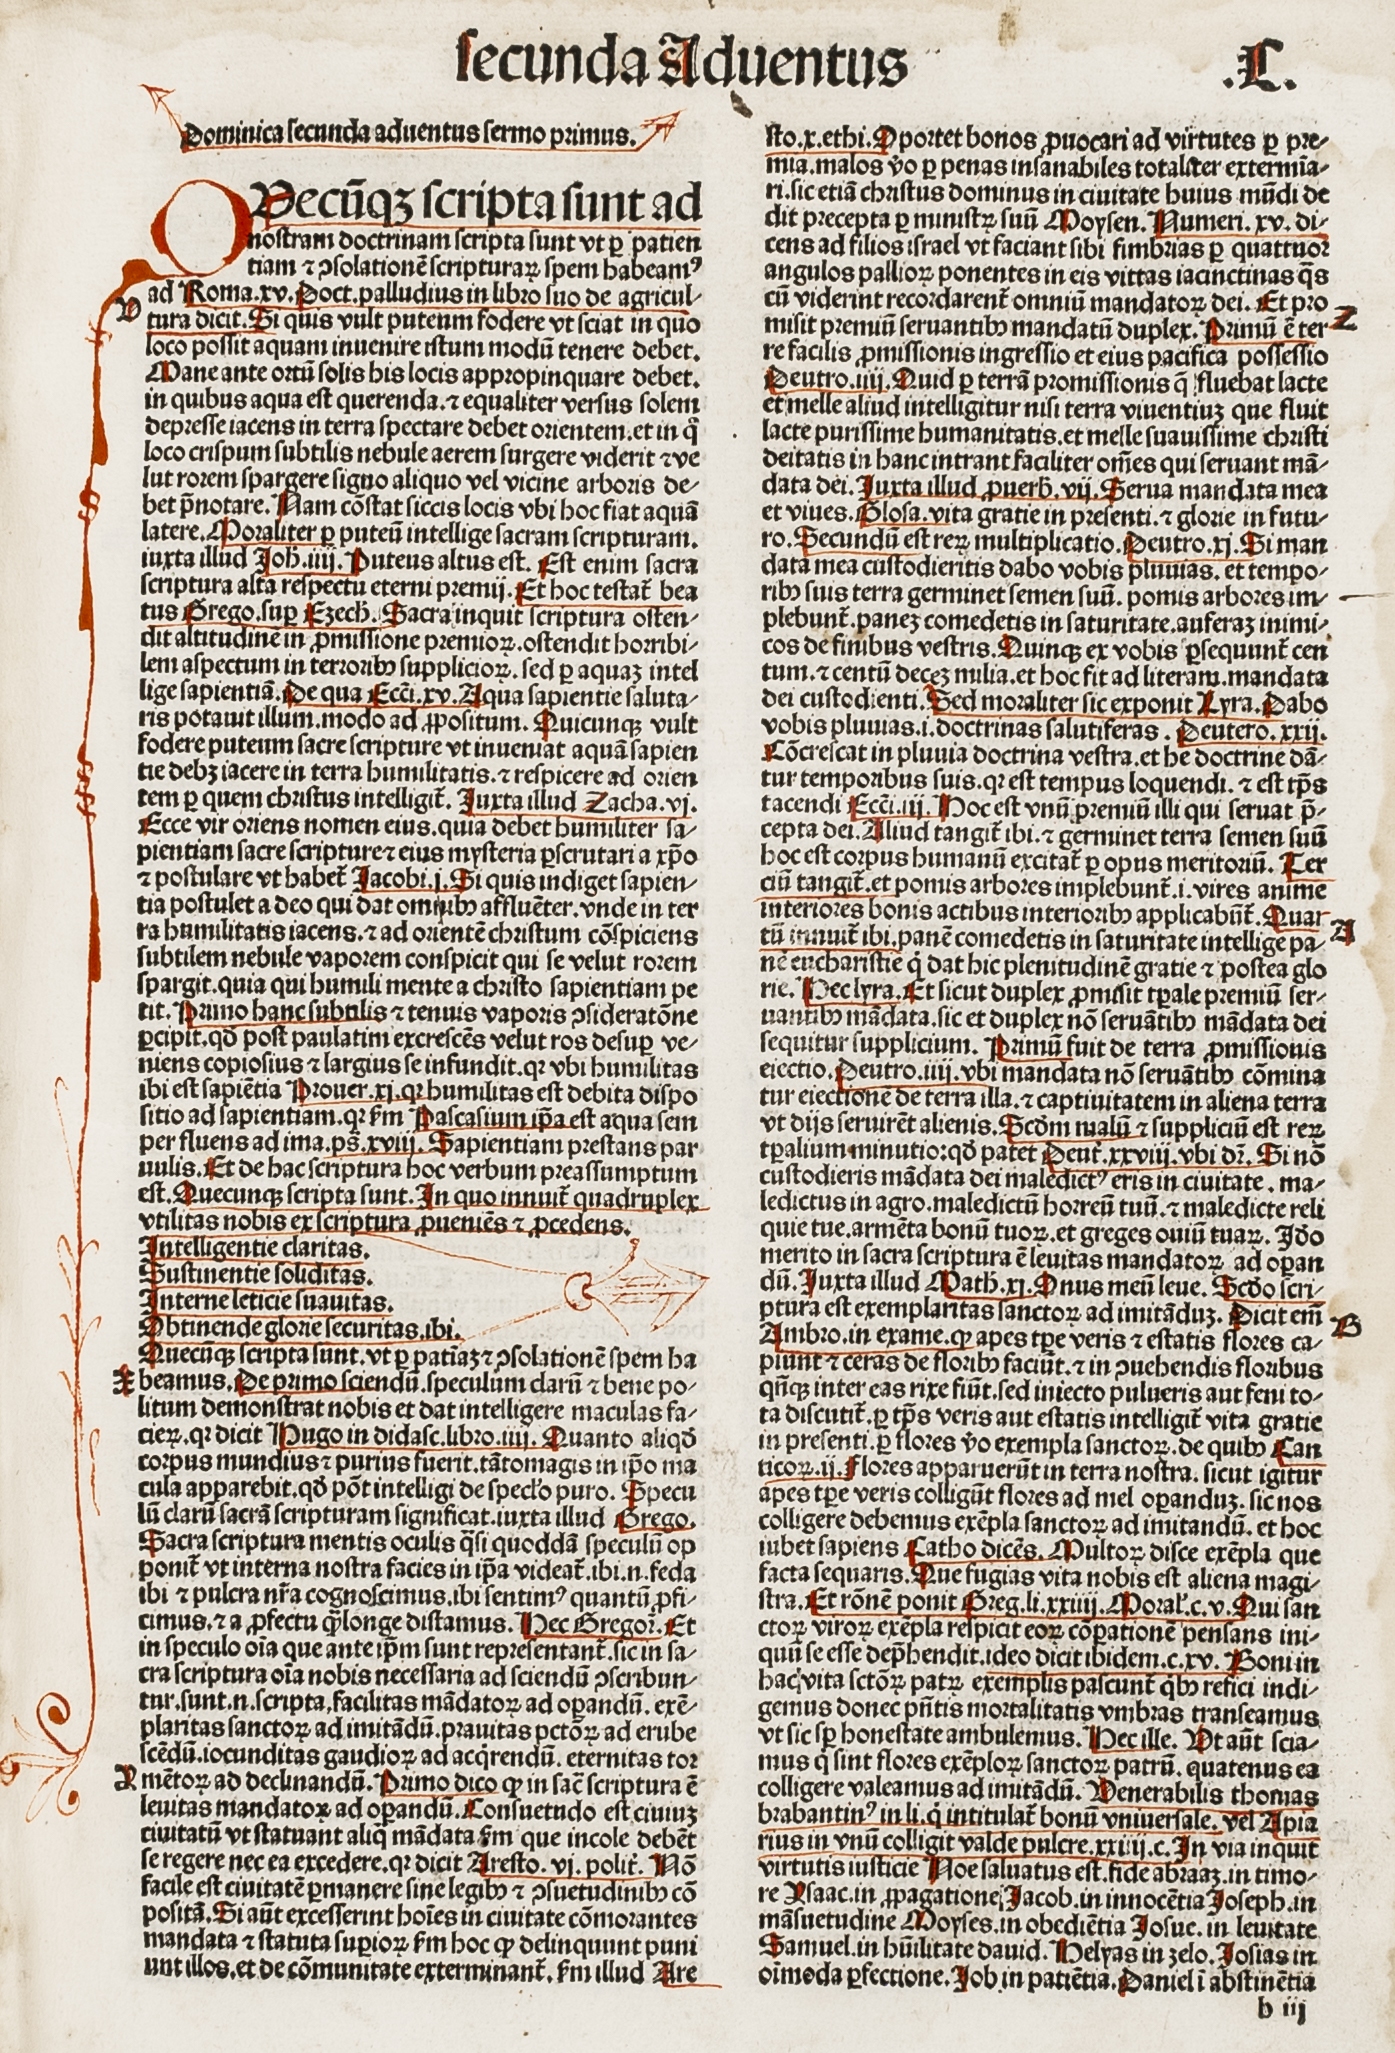 secunda Aduentus
.L.
Dominica secunda aduentus sermo primus.
QVecūqꝫ scripta sunt ad
nostram doctrinam scripta sunt vt ꝑ patien
tiam ⁊ ꝯsolationē scripturaꝝ spem habeamꝰ
ad Roma.xv. Doct.palludius in libro suo de agricul-
V
tura dicit. Si quis vult puteum fodere vt sciat in quo
loco possit aquam inuenire istum modū tenere debet.
Mane ante ortū solis his locis appropinquare debet.
in quibus aqua est querenda.⁊ equaliter versus solem
depresse iacens in terra spectare debet orientem.et in q̄
loco crispum subtilis nebule aerem surgere viderit ⁊ ve
lut rorem spargere signo aliquo vel vicine arboris de-
bet p̄notare. Nam cōstat siccis locis vbi hoc fiat aquā
latere. Moraliter ꝑ puteū intellige sacram scripturam.
iuxta illud Joh̄.iiij. Puteus altus est. Est enim sacra
scriptura alta respectu eterni premij. Et hoc testat̄ bea
tus Grego.suꝑ Ezech. Sacra inquit scriptura osten-
dit altitudinē in ꝓmissione premioꝝ.ostendit horribi-
lem aspectum in terroribꝰ supplicioꝝ. sed ꝑ aquaꝫ intel
lige sapientiā. De qua Ecci̅.xv. Aqua sapientie saluta-
ris potauit illum.modo ad ꝓpositum. Quicunqꝫ vult
fodere puteum sacre scripture vt inueniat aquā sapien
tie debꝫ iacere in terra humilitatis.⁊ respicere ad orien
tem ꝑ quem christus intelligit̄. Juxta illud Zacha.vj.
Ecce vir oriens nomen eius.quia debet humiliter sa-
pientiam sacre scripture ⁊ eius mysteria ꝑscrutari a xp̄o
⁊ postulare vt habet̄ Jacobi.j. Si quis indiget sapien-
tia postulet a deo qui dat omnibꝰ affluēter.vnde in ter
ra humilitatis iacens.⁊ ad orientē christum cōspiciens
subtilem nebule vaporem conspicit qui se velut rorem
spargit.quia qui humili mente a christo sapientiam pe
tit. Primo hanc subtilis ⁊ tenuis vaporis ꝯsideratōne
ꝑcipit.qd̄ post paulatim excrescēs velut ros desuꝑ ve-
niens copiosius ⁊ largius se infundit.qꝛ vbi humilitas
ibi est sapiētia Prouer.xj.qꝛ humilitas est debita dispo
sitio ad sapientiam.qꝛ ẜm Pascasium ip̄a est aqua sem
per fluens ad ima.ps̄.xviij. Sapientiam prestans par
uulis. Et de hac scriptura hoc verbum preassumptum
est. Quecunqꝫ scripta sunt. In quo innuit̄ quadruplex
vtilitas nobis ex scriptura ꝓueniēs ⁊ ꝓcedens.
Intelligentie claritas.
Sustinentie soliditas.
Interne leticie suauitas.
Obtinende glorie securitas.ibi.
Quecūqꝫ scripta sunt.vt ꝑ patiaꝫ ⁊ ꝯsolationē spem ha
X
beamus. De primo sciendū.speculum clarū ⁊ bene po-
litum demonstrat nobis et dat intelligere maculas fa-
cieꝝ.qꝛ dicit Hugo in didasc.libro.iiij. Quanto aliqd̄
corpus mundius ⁊ purius fuerit.tātomagis in ip̄o ma
cula apparebit.qd̄ pōt intelligi de specl'o puro. Specu
lū clarū sacrā scripturam significat.iuxta illud Grego.
Sacra scriptura mentis oculis q̄si quoddā speculū op
ponit̄ vt interna nostra facies in ip̄a videat̄.ibi.n.feda
ibi ⁊ pulcra nr̄a cognoscimus.ibi sentimꝰ quantū ꝓfi-
cimus.⁊ a ꝓfectu q̄longe distamus. Hec Gregor̄. Et
in speculo oīa que ante ip̄m sunt representant̄.sic in sa-
cra scriptura oīa nobis necessaria ad sciendū ꝯscribun-
tur.sunt.n.scripta.facilitas mādatoꝝ ad oꝑandū. exē-
plaritas sanctoꝝ ad imitādū.prauitas pctōꝝ ad erube
scēdū.iocunditas gaudioꝝ ad acq̄rendū. eternitas tor
R
mētoꝝ ad declinandū. Primo dico ꝙ in sac̄ scriptura ē
leuitas mandatoꝝ ad oꝑandū. Consuetudo est ciuiuꝫ
ciuitatū vt statuant aliq̄ mādata ẜm que incole debēt
se regere nec ea excedere.qꝛ dicit Aresto. vj. polit̄. Nō
facile est ciuitatē ꝑmanere sine legibꝰ ⁊ ꝯsuetudinibꝰ cō
positā. Si aūt excesserint hoīes in ciuitate cōmorantes
mandata ⁊ statuta suꝑioꝝ ẜm hoc ꝙ delinquunt puni
unt illos.et de cōmunitate exterminant̄. ẜm illud Are
sto.x.ethi. Oportet bonos ꝓuocari ad virtutes ꝑ pre-
mia.malos v̄o ꝑ penas insanabiles totaliter extermīa-
ri.sic etiā christus dominus in ciuitate huius mūdi de
dit precepta ꝑ ministꝝ suū Moysen. Numeri. xv. di-
cens ad filios israel vt faciant sibi fimbrias ꝑ quattuor
angulos pallioꝝ ponentes in eis vittas iacinctinas q̄s
cū viderint recordarent̄ omniū mandatoꝝ dei. Et pro
misit premiū seruantibꝰ mandatū duplex. Primū ē ter
Z
re facilis ꝓmissionis ingressio et eius pacifica possessio
Deutro.iiij. Quid ꝑ terrā promissionis q̄ fluebat lacte
et melle aliud intelligitur nisi terra viuentiuꝫ que fluit
lacte purissime humanitatis.et melle suauissime christi
deitatis in hanc intrant faciliter om̄es qui seruant mā-
data dei. Juxta illud ꝓuerb̄.vij. Serua mandata mea
et viues. Glosa.vita gratie in presenti.⁊ glorie in futu-
ro. Secundū est reꝝ multiplicatio. Deutro.xj. Si man
data mea custodieritis dabo vobis pluuias. et tempo-
ribꝰ suis terra germinet semen suū. pomis arbores im-
plebunt̄.paneꝫ comedetis in saturitate.auferaꝫ inimi-
cos de finibus vestris. Quinqꝫ ex vobis ꝑsequunt̄ cen
tum.⁊ centū deceꝫ milia.et hoc fit ad literam.mandata
dei custodienti. Sed moraliter sic exponit Lyra. Dabo
vobis pluuias.i.doctrinas salutiferas. Deutero.xxij.
Cōcrescat in pluuia doctrina vestra.et he doctrine dā-
tur temporibus suis.qꝛ est tempus loquendi. ⁊ est tp̄s
tacendi Ecci̅.iij. Hoc est vnū premiū illi qui seruat p̄-
cepta dei. Aliud tangit̄ ibi.⁊ germinet terra semen suū
hoc est corpus humanū excitat̄ ꝑ opus meritoriū. Ter
ciū tangit̄.et pomis arbores implebunt̄.i.vires anime
interiores bonis actibus interioribꝰ applicabūt̄. Quar
A
tū innuit̄ ibi.panē comedetis in saturitate intellige pa-
nē eucharistie q̄ dat hic plenitudinē gratie ⁊ postea glo
rie. Hec lyra. Et sicut duplex ꝓmisit tꝑale premiū ser-
uantibꝰ mādata.sic et duplex nō seruātibꝰ mādata dei
sequitur supplicium. Primū fuit de terra ꝓmissionis
eiectio. Deutro.iiij.vbi mandata nō seruātibꝰ cōmina
tur eiectionē de terra illa.⁊ captiuitatem in aliena terra
vt dijs seruirēt alienis. Scd̄m malū ⁊ suppliciū est reꝝ
tꝑalium minutio:qd̄ patet Deut̄.xxviij.vbi dꝛ̄. Si nō
custodieris mādata dei maledictꝰ eris in ciuitate . ma-
ledictus in agro.maledictū horreū tuū.⁊ maledicte reli
quie tue.armēta bonū tuoꝝ.et greges ouiū tuaꝝ. Id̄o
merito in sacra scriptura ē leuitas mandatoꝝ ad oꝑan
dū. Juxta illud Math̄.xj. Onus meū leue. Scd̄o scri-
ptura est exemplaritas sanctoꝝ ad imitāduꝫ. Dicit em̄
B
Ambro.in exame.ꝙ apes tꝑe veris ⁊ estatis flores ca-
piunt ⁊ ceras de floribꝰ faciūt.⁊ in ꝯuehendis floribus
qn̄qꝫ inter eas rixe fiūt.sed iniecto pulueris aut feni to-
ta discutit̄.ꝑ tp̄s veris aut estatis intelligit̄ vita gratie
in presenti.ꝑ flores v̄o exempla sanctoꝝ.de quibꝰ Can
ticoꝝ.ij. Flores apparuerūt in terra nostra. sicut igitur
apes tꝑe veris colligūt flores ad mel oꝑanduꝫ. sic nos
colligere debemus exēpla sanctoꝝ ad imitandū. et hoc
iubet sapiens Catho dicēs. Multoꝝ disce exēpla que
facta sequaris. Que fugias vita nobis est aliena magi-
stra. Et rōnē ponit Greg.li.xxiiij. Moral̄.c.v. Qui san
ctoꝝ viroꝝ exēpla respicit eoꝝ cōꝑationē pensans ini-
quū se esse dep̄hendit.ideo dicit ibidem.c.xv. Boni in
hac vita sctōꝝ patꝝ exemplis pascunt̄ q̄bꝰ refici indi-
gemus donec pn̄tis mortalitatis vmbras transeamus
vt sic sꝑ honestate ambulemus. Hec ille. Vt aūt scia-
mus q̄ sint flores exēploꝝ sanctoꝝ patrū. quatenus ea
colligere valeamus ad imitādū. Venerabilis thomas
brabantinꝰ in li.q̄ intitulat̄ bonū vniuersale. vel Apia
rius in vnū colligit valde pulcre.xxiiij.c. In via inquit
virtutis iusticie Noe saluatus est.fide abraaꝫ.in timo-
re Ysaac.in ꝓpagatione Jacob.in innocētia Joseph.in
māsuetudine Moyses.in obediētia Josue. in leuitate
Samuel.in hūilitate dauid. Helyas in zelo. Josias in
oīmoda ꝑfectione. Job in patiētia. Daniel ī abstinētia
b iij